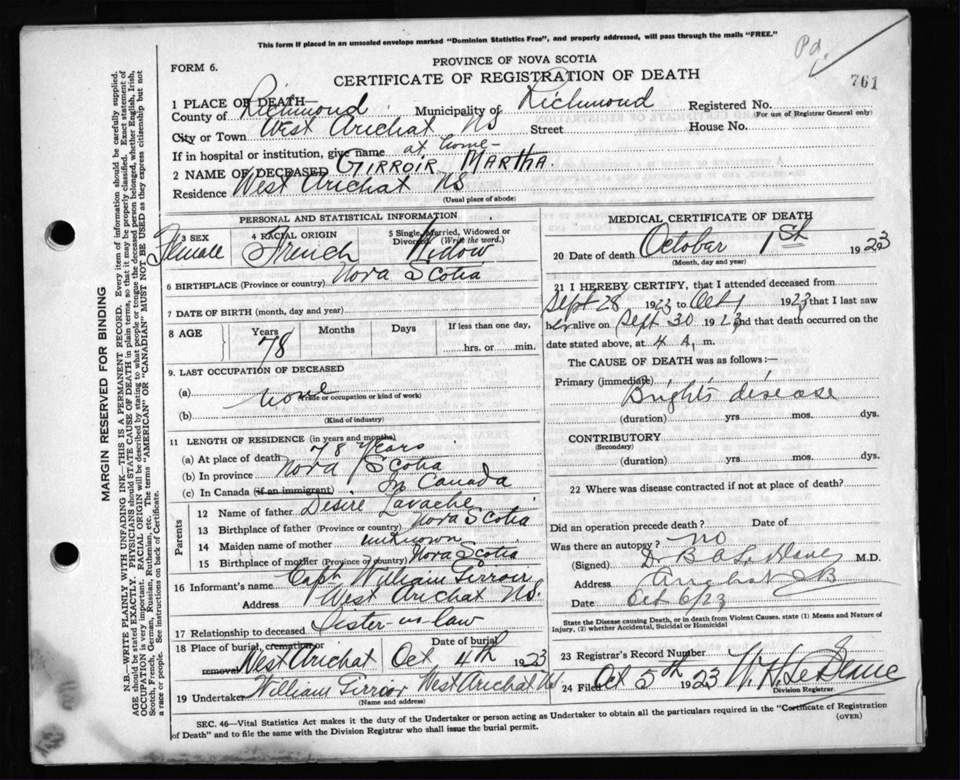 This form if placed in an unsealed envelope marked "Dominion Statistics Free", and properly addressed, will pass through the mails "FREE."
Pd.
761
PROVINCE OF NOVA SCOTIA
FORM 6.
CERTIFICATE OF REGISTRATION OF DEATH
1 PLACE OF DEATH—
County of Richmond Municipality of Richmond Registered No.
(For use of Registrar General only)
City or Town West Arichat NS Street House No.
If in hospital or institution, give name at home-
2 NAME OF DECEASED GIRROIR, MARTHA.
Residence West Arichat NS
(Usual place of abode)
PERSONAL AND STATISTICAL INFORMATION
3 SEX Female
4 RACIAL ORIGIN French
5 Single, Married, Widowed or Divorced (Write the word.) Widow
6 BIRTHPLACE (Province or country) Nova Scotia
7 DATE OF BIRTH (month, day and year)
8 AGE Years 78 Months Days If less than one day,
hrs. or min.
9. LAST OCCUPATION OF DECEASED
(a) none
(Trade or occupation or kind of work)
(b)
(Kind of industry)
11 LENGTH OF RESIDENCE (in years and months)
(a) At place of death 78 years
(b) In province Nova Scotia
(c) In Canada (if an immigrant) In Canada
Parents
12 Name of father Desire Lavache
13 Birthplace of father (Province or country) Nova Scotia
14 Maiden name of mother unknown
15 Birthplace of mother (Province or country) Nova Scotia
16 Informant's name Capt William Girroir
Address West Arichat NS.
17 Relationship to deceased Sister-in-law
18 Place of burial, cremation or removal West Arichat Date of burial Oct 4th 1923
19 Undertaker William Girroir West Arichat NS
(Name and address)
MEDICAL CERTIFICATE OF DEATH
20 Date of death October 1st 1923
(Month, day and year)
21 I HEREBY CERTIFY, that I attended deceased from
Sept 28 1923 to Oct 1 1923 that I last saw
her alive on Sept 30 1923 and that death occurred on the
date stated above, at 4 A. m.
The CAUSE OF DEATH was as follows:—
Primary (immediate)
Bright's disease
(duration) yrs mos. dys.
CONTRIBUTORY
(Secondary)
(duration) yrs. mos. dys.
22 Where was disease contracted if not at place of death?
Did an operation precede death? Date of
Was there an autopsy? no
(Signed) Dr B A M.D.
Address Arichat CB
Date Oct 6/23
State the Disease causing Death, or in death from Violent Causes, state (1) Means and Nature of
Injury, (2) whether Accidental, Suicidal or Homicidal
23 Registrar's Record Number
24 Filed Oct 5th 1923 W. H. LeBlanc
Division Registrar.
SEC. 46—Vital Statistics Act makes it the duty of the Undertaker or person acting as Undertaker to obtain all the particulars required in the "Certificate of Registration
of Death" and to file the same with the Division Registrar who shall issue the burial permit.
(OVER)
MARGIN RESERVED FOR BINDING
N.B.—WRITE PLAINLY WITH UNFADING INK—THIS IS A PERMANENT RECORD. Every item of information should be carefully supplied.
AGE should be stated EXACTLY. PHYSICIANS should STATE CAUSE OF DEATH in plain terms, so that it may be properly classified. Exact statement of
OCCUPATION is very important. RACIAL ORIGIN will be described by stating to what people or tongue the deceased person belonged, whether English, Irish,
Scotch, French, German, Russian, Ruthenian, etc. The terms "AMERICAN" OR "CANADIAN" MUST NOT BE USED as they express citizenship but not
a race or people. See instructions on back of Certificate.